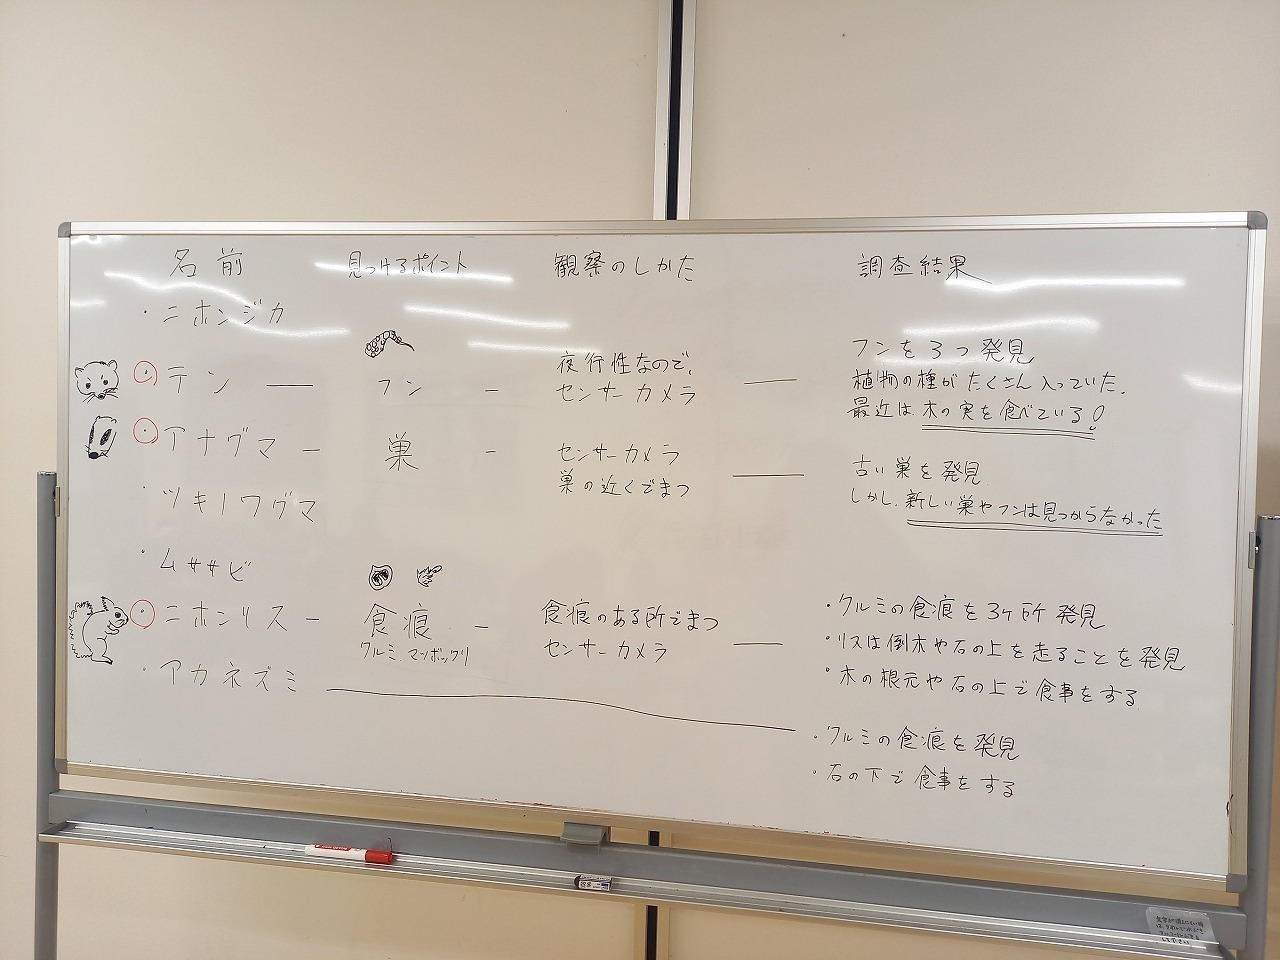 名前 見つけるポイント 観察のしかた 調査結果
・ニホンジカ
・テン — フン - 夜行性なので、
センサーカメラ
フンを3つ発見
植物の種がたくさん入っていた。
最近は木の実を食べている!
・アナグマ - 巣 - センサーカメラ
巣の近くでまつ
古い巣を発見
しかし、新しい巣やフンは見つからなかった
・ツキノワグマ
・ムササビ
・ニホンリス - 食痕 -
クルミ、マツボックリ
食痕のある所でまつ
センサーカメラ
・クルミの食痕を3ヶ所発見
・リスは倒木や石の上を走ることを発見
・木の根元や石の上で食事をする
・アカネズミ
・クルミの食痕を発見
・石の下で食事をする